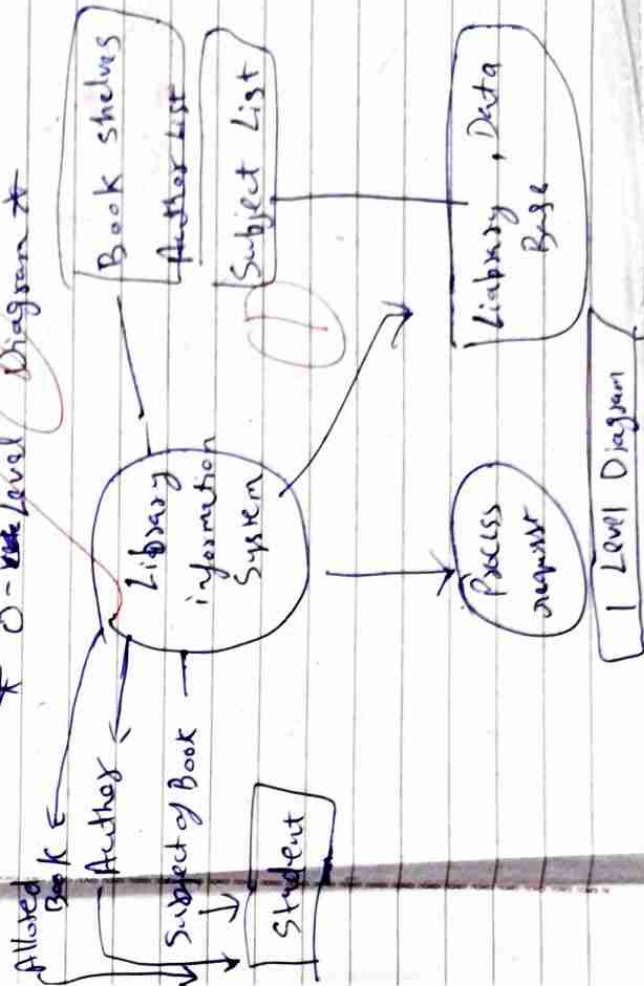 * 0- Level Diagram *
Alloted
Book
Author
Subject of Book
Student
Library
information
System
Book shelves
Author List
Subject List
Process
request
Liabrary, Data
Base
1 Level Diagram